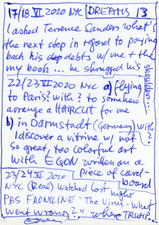 17/18 VI 2020 NYC DREAMS 13
I asked Terrence Sanders what's
the next step in regard to paying
back his debts w/ me & the
my book... he shrugged his shoulders...
22/23 VI 2020 NYC a) flying
to Paris? with? to somehow
arrange a HAIRCUT for me
b) in Darmstadt (Germany) with?
I discover a vitrine w/ not
so great, too colorful art
with EGON written on a
piece of cardboard
23/24 VI 2020
NYC (Real) Watched last night
PBS FRONTLINE "The Virus - What
Went Wrong?" where TRUMP